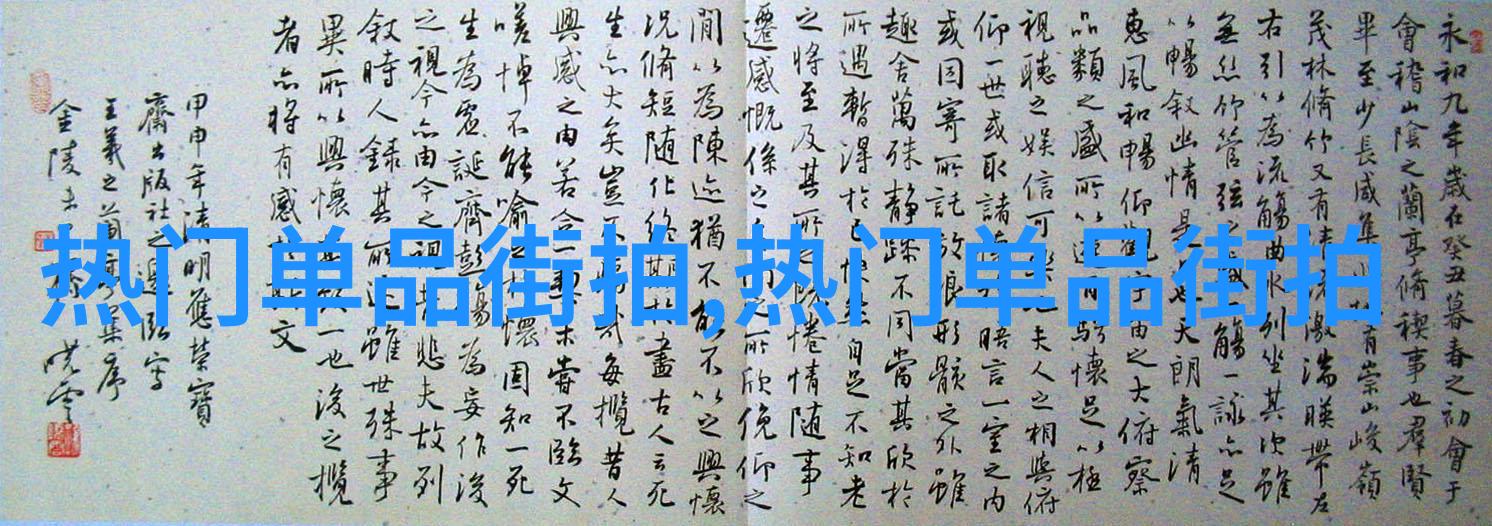 永和九年歲在癸丑暮春之初會于
會稽山陰之蘭亭脩稧事也羣賢
畢至少長咸集有崇山峻嶺
茂林脩竹又有清流激湍暎帶左
右引以為流觴曲水列坐其次雖
無絲竹管弦之盛一觴一詠亦足
以暢敘幽情是日也天朗氣清
惠風和暢仰觀宇宙之大俯察
品類之盛所以遊目騁懷足以極
視聽之娛信可樂也夫人之相與俯
仰一世或取諸悟言一室之內
或因寄所託放浪形骸之外雖
趣舍萬殊靜躁不同當其欣於
所遇暫得於己快然自足不知老
之將至及其所之既惓情隨事
遷感慨係之矣向之所欣俛仰之
間以為陳迹猶不能不以之興懷
況脩短隨化終期於盡古人云死
生亦大矣豈不痛哉每攬昔人
興感之由若合一契未嘗不臨文
嗟悼不能喻之於懷固知一死
生為虛誕齊彭殤為妄作後
之視今亦由今之視昔悲夫故列
敘時人錄其所述雖世殊事
異所以興懷其致一也後之攬
者亦將有感於斯文
甲申年清明應榮寶
齋出版社之邀臨寫
王羲之蘭亭集序
金陵
热门单品街拍,热门单品街拍